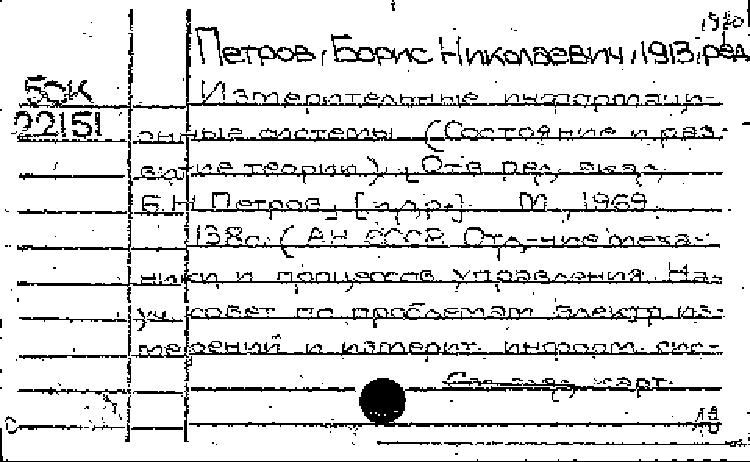 1920
Петров, Борис Николаевич, 1913, ред.
50К
Измерительные информаци-
22151
онные системы (Состояние и раз-
витие теории). [Отв. ред. акад.
Б.Н. Петров]. [и др.]. М., 1969.
138с. (АН СССР. Отд-ние меха-
ники и процессов управления. На-
уч. совет по проблемам электр. из-
мерений и измерит. информ. сис-
См. след. карт.